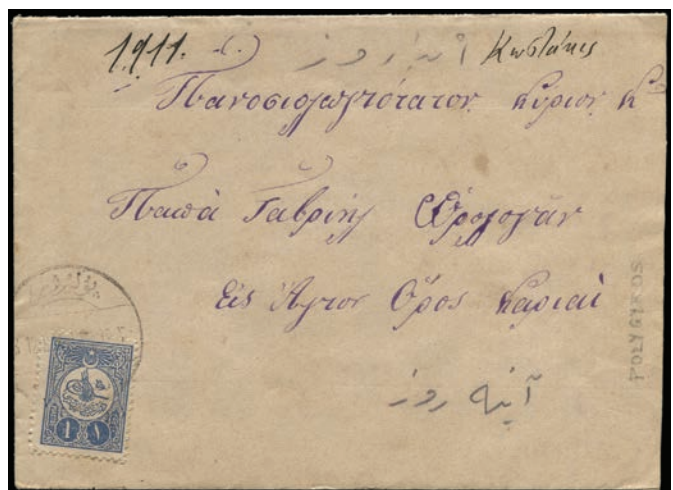 1911. آینه روز Κωστάκις
Πανοσιολογιότατον κύριον κ
Παπὰ Γαβριὴλ Ὡρολογᾶν
Εἰς Ἅγιον Ὄρος Καριαὶ
آینه روز
POLYGYROS
1 ١